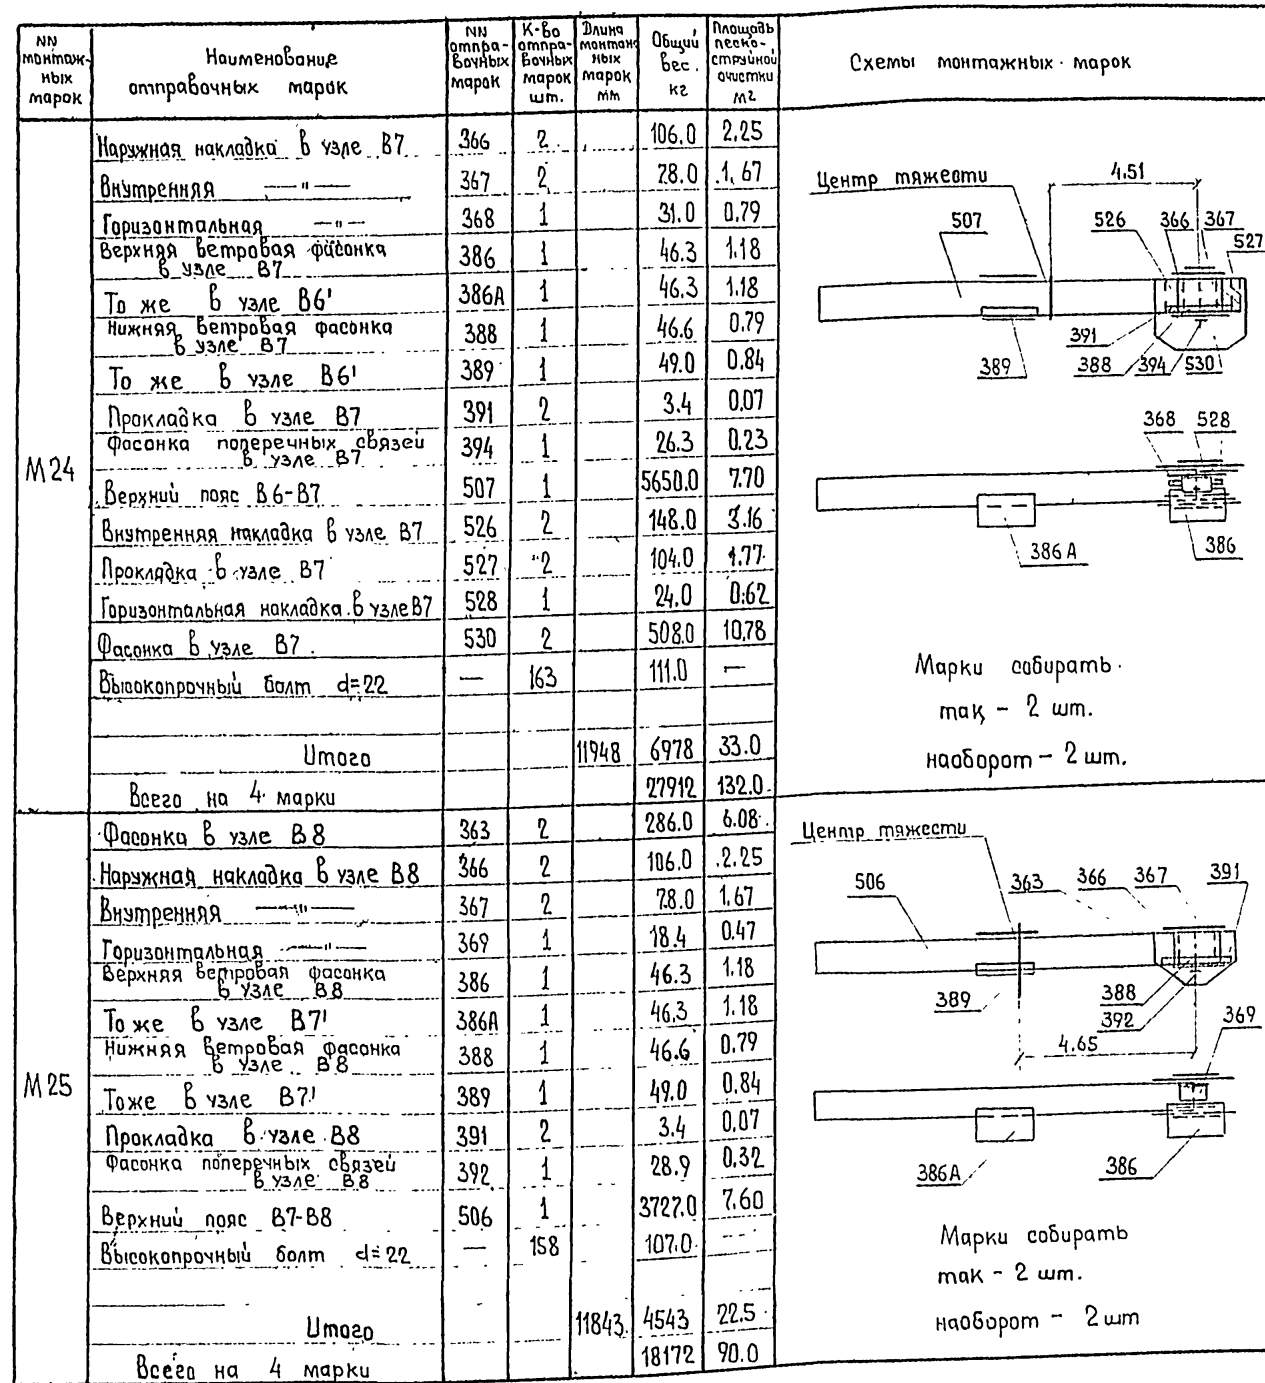 NN монтажных марок | Наименование отправочных марок | NN отправочных марок | К-во отправочных марок шт. | Длина монтажных марок мм | Общий вес. кг | Площадь пескоструйной очистки м2 | Схемы монтажных марок
М24
Наружная накладка в узле В7 | 366 | 2 | 106.0 | 2.25
Внутренняя —"— | 367 | 2 | 78.0 | 1,67
Горизонтальная —"— | 368 | 1 | 31.0 | 0.79
Верхняя ветровая фасонка в узле В7 | 386 | 1 | 46.3 | 1.18
То же в узле В6' | 386А | 1 | 46.3 | 1.18
Нижняя ветровая фасонка в узле В7 | 388 | 1 | 46.6 | 0.79
То же в узле В6' | 389 | 1 | 49.0 | 0.84
Прокладка в узле В7 | 391 | 2 | 3.4 | 0.07
Фасонка поперечных связей в узле В7 | 394 | 1 | 26.3 | 0.23
Верхний пояс В6-В7 | 507 | 1 | 5650.0 | 7.70
Внутренняя накладка в узле В7 | 526 | 2 | 148.0 | 3.16
Прокладка в узле В7 | 527 | 2 | 104.0 | 1.77
Горизонтальная накладка в узле В7 | 528 | 1 | 24.0 | 0.62
Фасонка в узле В7. | 530 | 2 | 508.0 | 10.78
Высокопрочный болт d=22 | — | 163 | 111.0 | —
Итого | 11948 | 6978 | 33.0
Всего на 4 марки | 27912 | 132.0
Центр тяжести
4.51
507
526
366
367
527
391
389
388
394
530
368
528
386А
386
Марки собирать
так - 2 шт.
наоборот - 2 шт.
М25
Фасонка в узле В8 | 363 | 2 | 286.0 | 6.08
Наружная накладка в узле В8 | 366 | 2 | 106.0 | 2.25
Внутренняя —"— | 367 | 2 | 78.0 | 1.67
Горизонтальная —"— | 369 | 1 | 18.4 | 0.47
Верхняя ветровая фасонка в узле В8 | 386 | 1 | 46.3 | 1.18
То же в узле В7' | 386А | 1 | 46,3 | 1.18
Нижняя ветровая фасонка в узле В8 | 388 | 1 | 46.6 | 0.79
Тоже в узле В7' | 389 | 1 | 49.0 | 0.84
Прокладка в узле В8 | 391 | 2 | 3.4 | 0,07
Фасонка поперечных связей в узле В8 | 392 | 1 | 28.9 | 0.32
Верхний пояс В7-В8 | 506 | 1 | 3727.0 | 7.60
Высокопрочный болт d=22 | — | 158 | 107.0 | —
Итого | 11843 | 4543 | 22.5
Всего на 4 марки | 18172 | 90.0
Центр тяжести
506
363
366
367
391
389
388
392
369
4.65
386А
386
Марки собирать
так - 2 шт.
наоборот - 2 шт